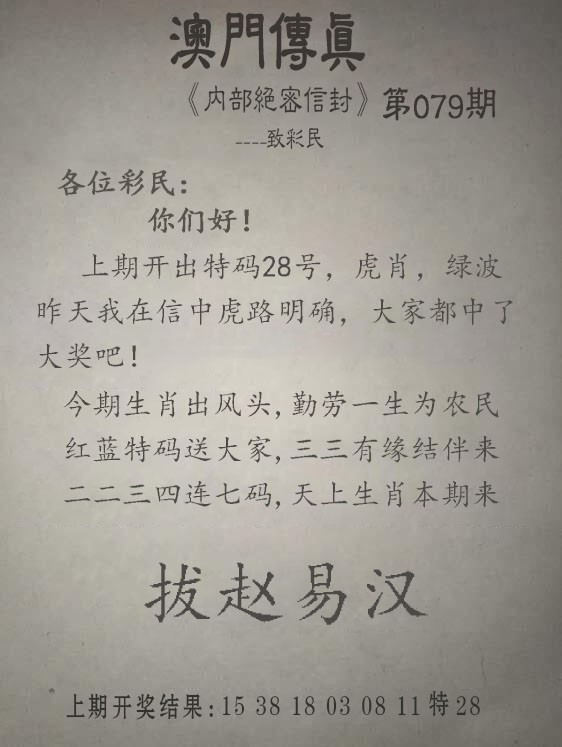 澳門傳真
《内部絕密信封》第079期
----致彩民
各位彩民:
你们好!
上期开出特码28号，虎肖，绿波
昨天我在信中虎路明确，大家都中了
大奖吧!
今期生肖出风头,勤劳一生为农民
红蓝特码送大家,三三有缘结伴来
二二三四连七码,天上生肖本期来
拔赵易汉
上期开奖结果:15 38 18 03 08 11 特 28